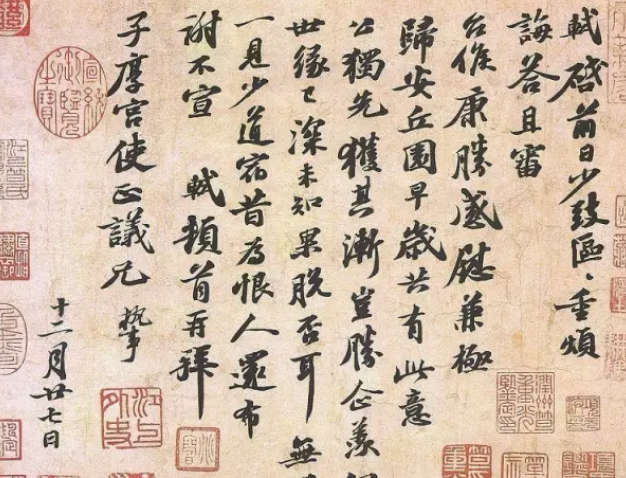 軾啓前日少致區〻重煩
誨答且審
台候康勝感慰兼極
歸安丘園早歲共有此意
公獨先獲其漸豈勝企羨
世緣已深未知果脫否耳無
一見少道宿昔為恨人還布
謝不宣 軾頓首再拜
子厚宮使正議兄 執事
十二月廿七日
宣統御覽之寶
江上外史